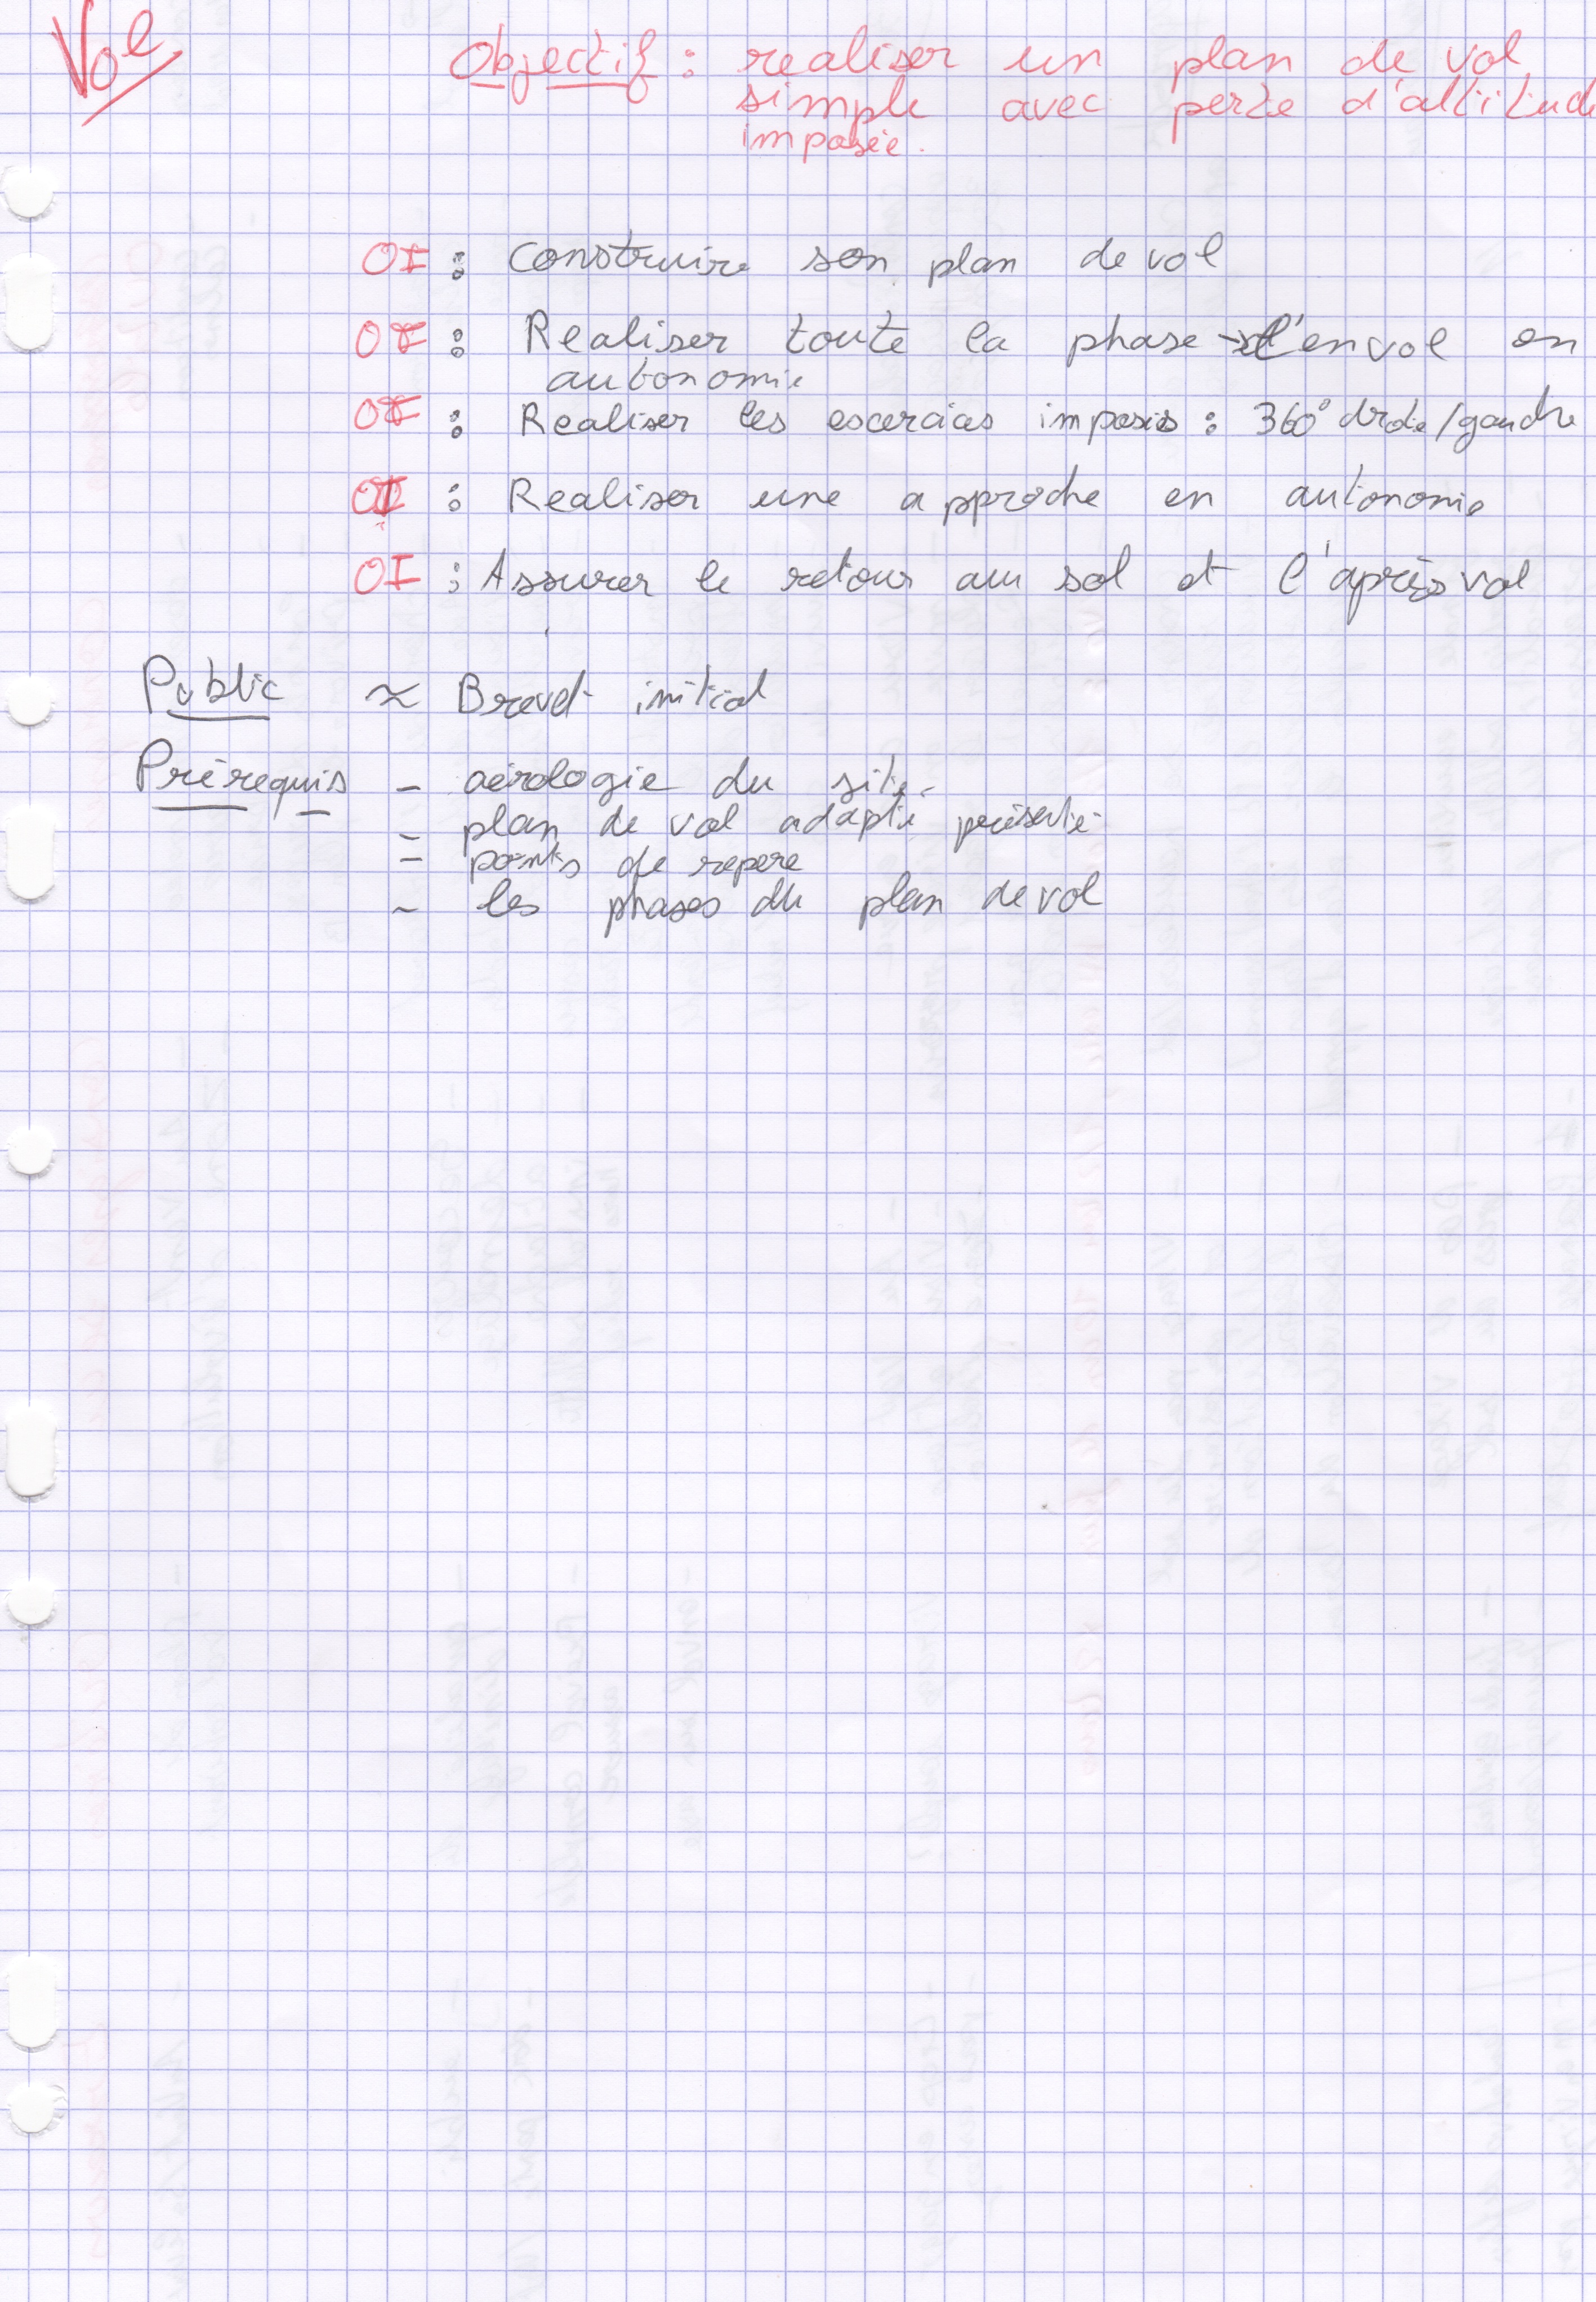 Vol
Objectif : realiser un plan de vol
simple avec perte d'altitude
imposée.
OI : Construire son plan de vol
OI : Realiser toute la phase d'envol en
autonomie
OI : Realiser les exercices imposés : 360° droite/gauche
OI : Realiser une approche en autonomie
OI : Assurer le retour au sol et l'après vol
Public ≈ Brevet initial
Prérequis - aérologie du site
- plan de vol adapté présenté
- points de repere
- les phases du plan de vol